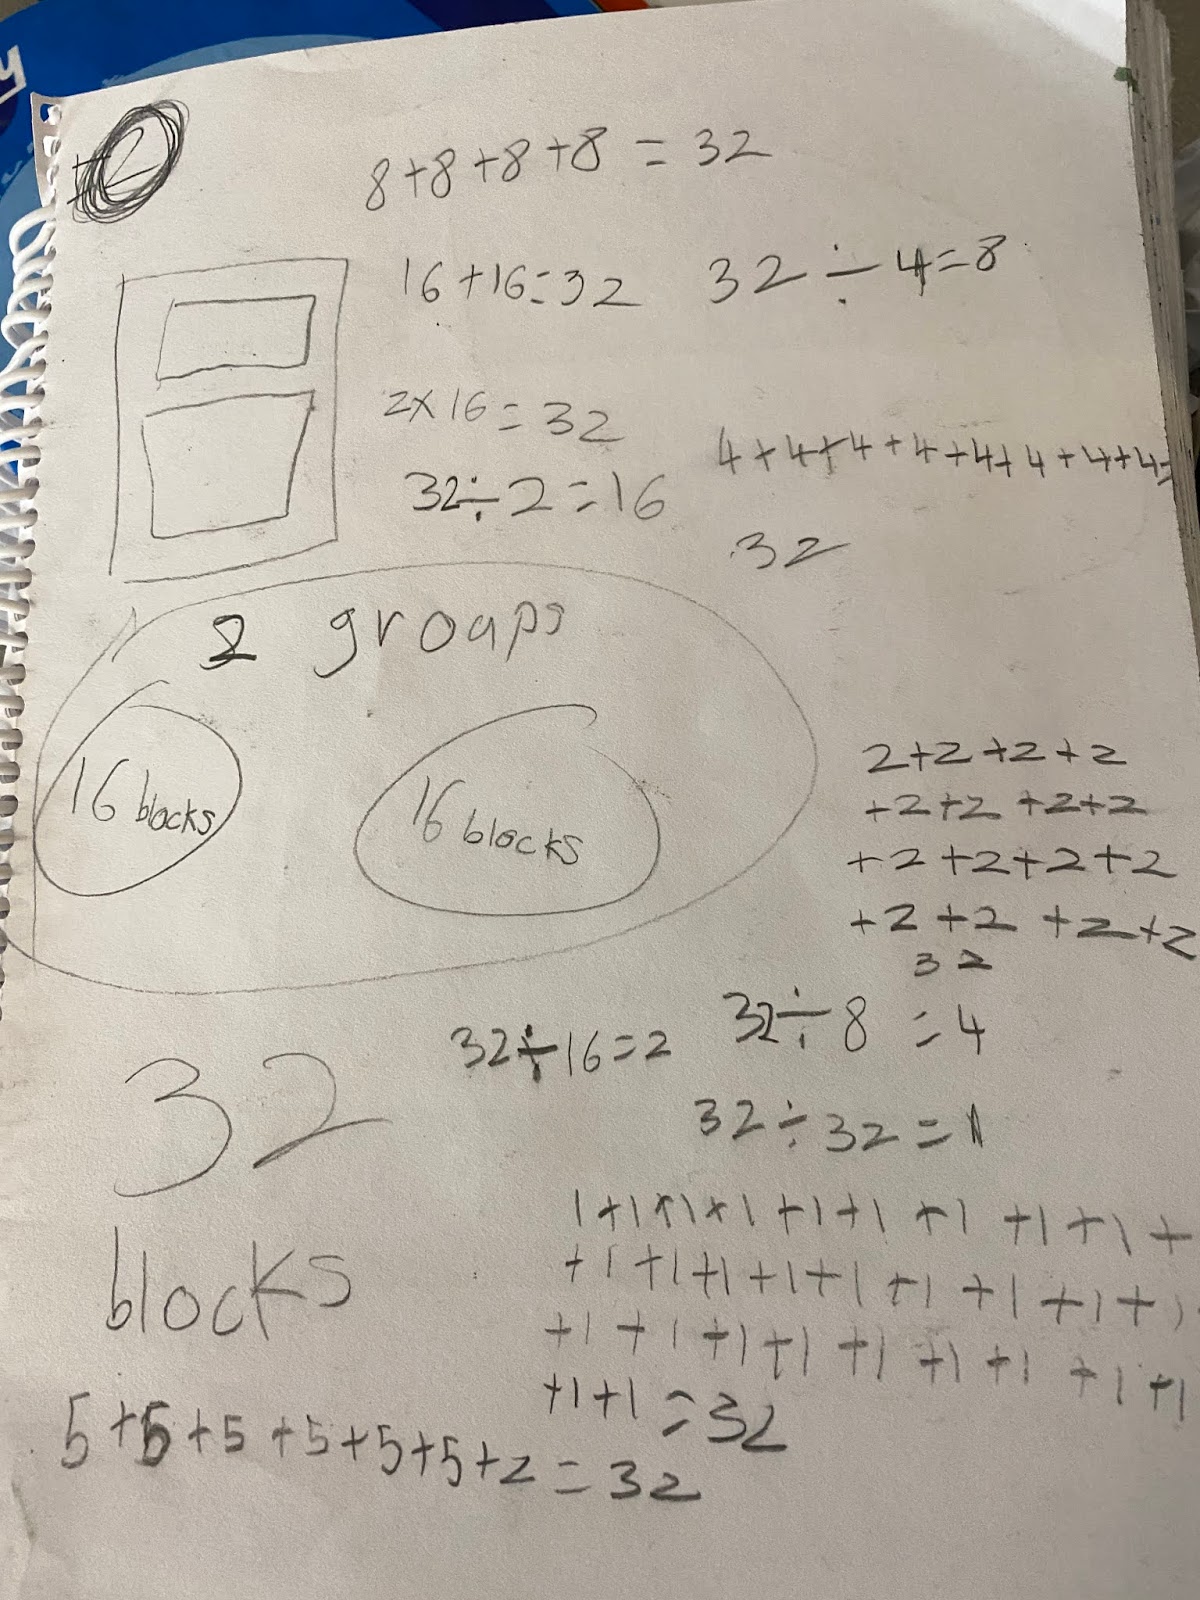 8+8+8+8 = 32
16+16=32
32 ÷ 4=8
2×16=32
32÷2=16
4+4+4+4+4+4+4+4=
32
2 groups
16 blocks
16 blocks
2+2+2+2
+2+2+2+2
+2+2+2+2
+2+2+2+2
32
32÷16=2
32÷8=4
32÷32=1
32
blocks
1+1+1+1+1+1+1+1+1+
+1+1+1+1+1+1+1+1+1
+1+1+1+1+1+1+1+1+1
+1+1=32
5+5+5+5+5+5+2=32